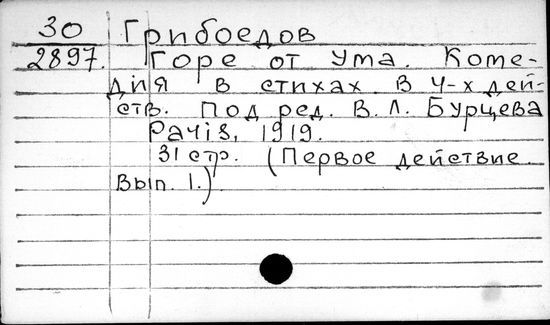 30 Грибоедов
2897. Горе от Ума. Коме-
дия в стихах в 4-х дей-
ств. Под ред. В. Л. Бурцева
Paris, 1919.
31 стр. (Первое действие.
Вып. 1.)